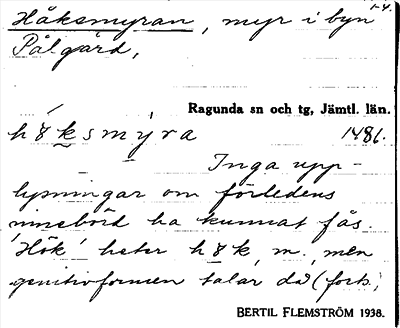 1-4.
Håksmyran, myr i byn
Pålgård,
Ragunda sn och tg, Jämtl. län.
h8ksmýra 1481.
Inga upp-
lysningar om förledens
innebörd ha kunnat fås.
'Hök' heter h8k, m., men
genitivformen talar då (forts.)
BERTIL FLEMSTRÖM 1938.